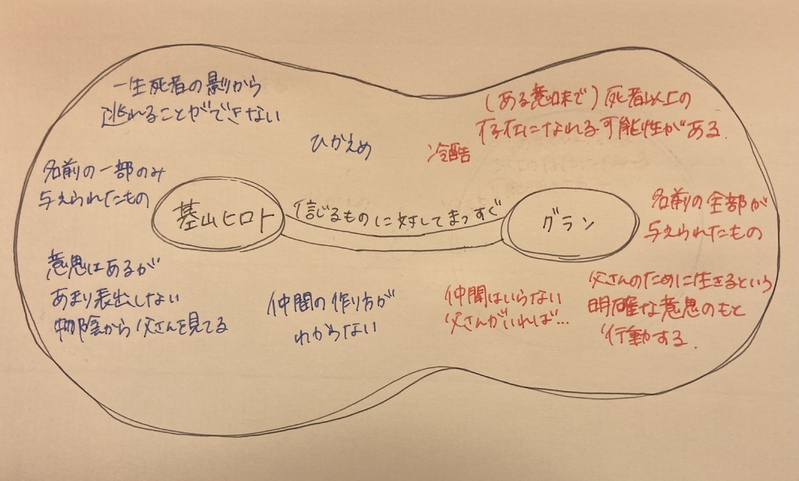 一生死者の影から
逃れることができない
(ある意味で)死者以上の
存在になれる可能性がある.
ひかえめ
冷酷
名前の一部のみ
与えられたもの
墓山ヒロト
信じるものに対してまっすぐ
グラン
名前の全部が
与えられたもの
意思はあるが
あまり表出しない
物陰から父さんを見てる
仲間の作り方が
わからない
仲間はいらない
父さんがいれば…
父さんのために生きるという
明確な意思のもと
行動する.